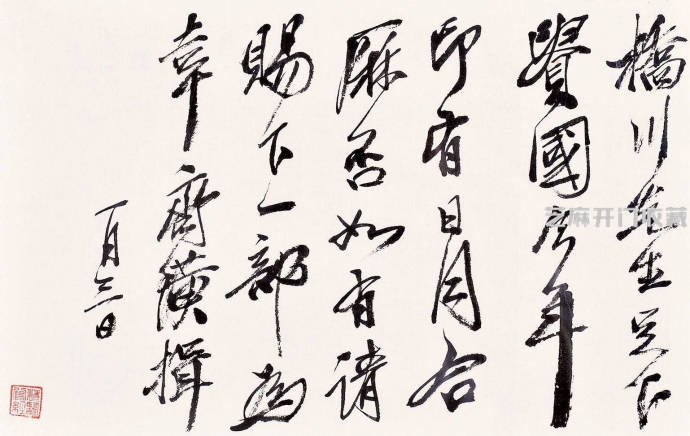 橋川先生足下
貴國今年
印有日月合
厤否如有請
賜下一部為
幸齊璜揖
一月三日
芝麻开门收藏